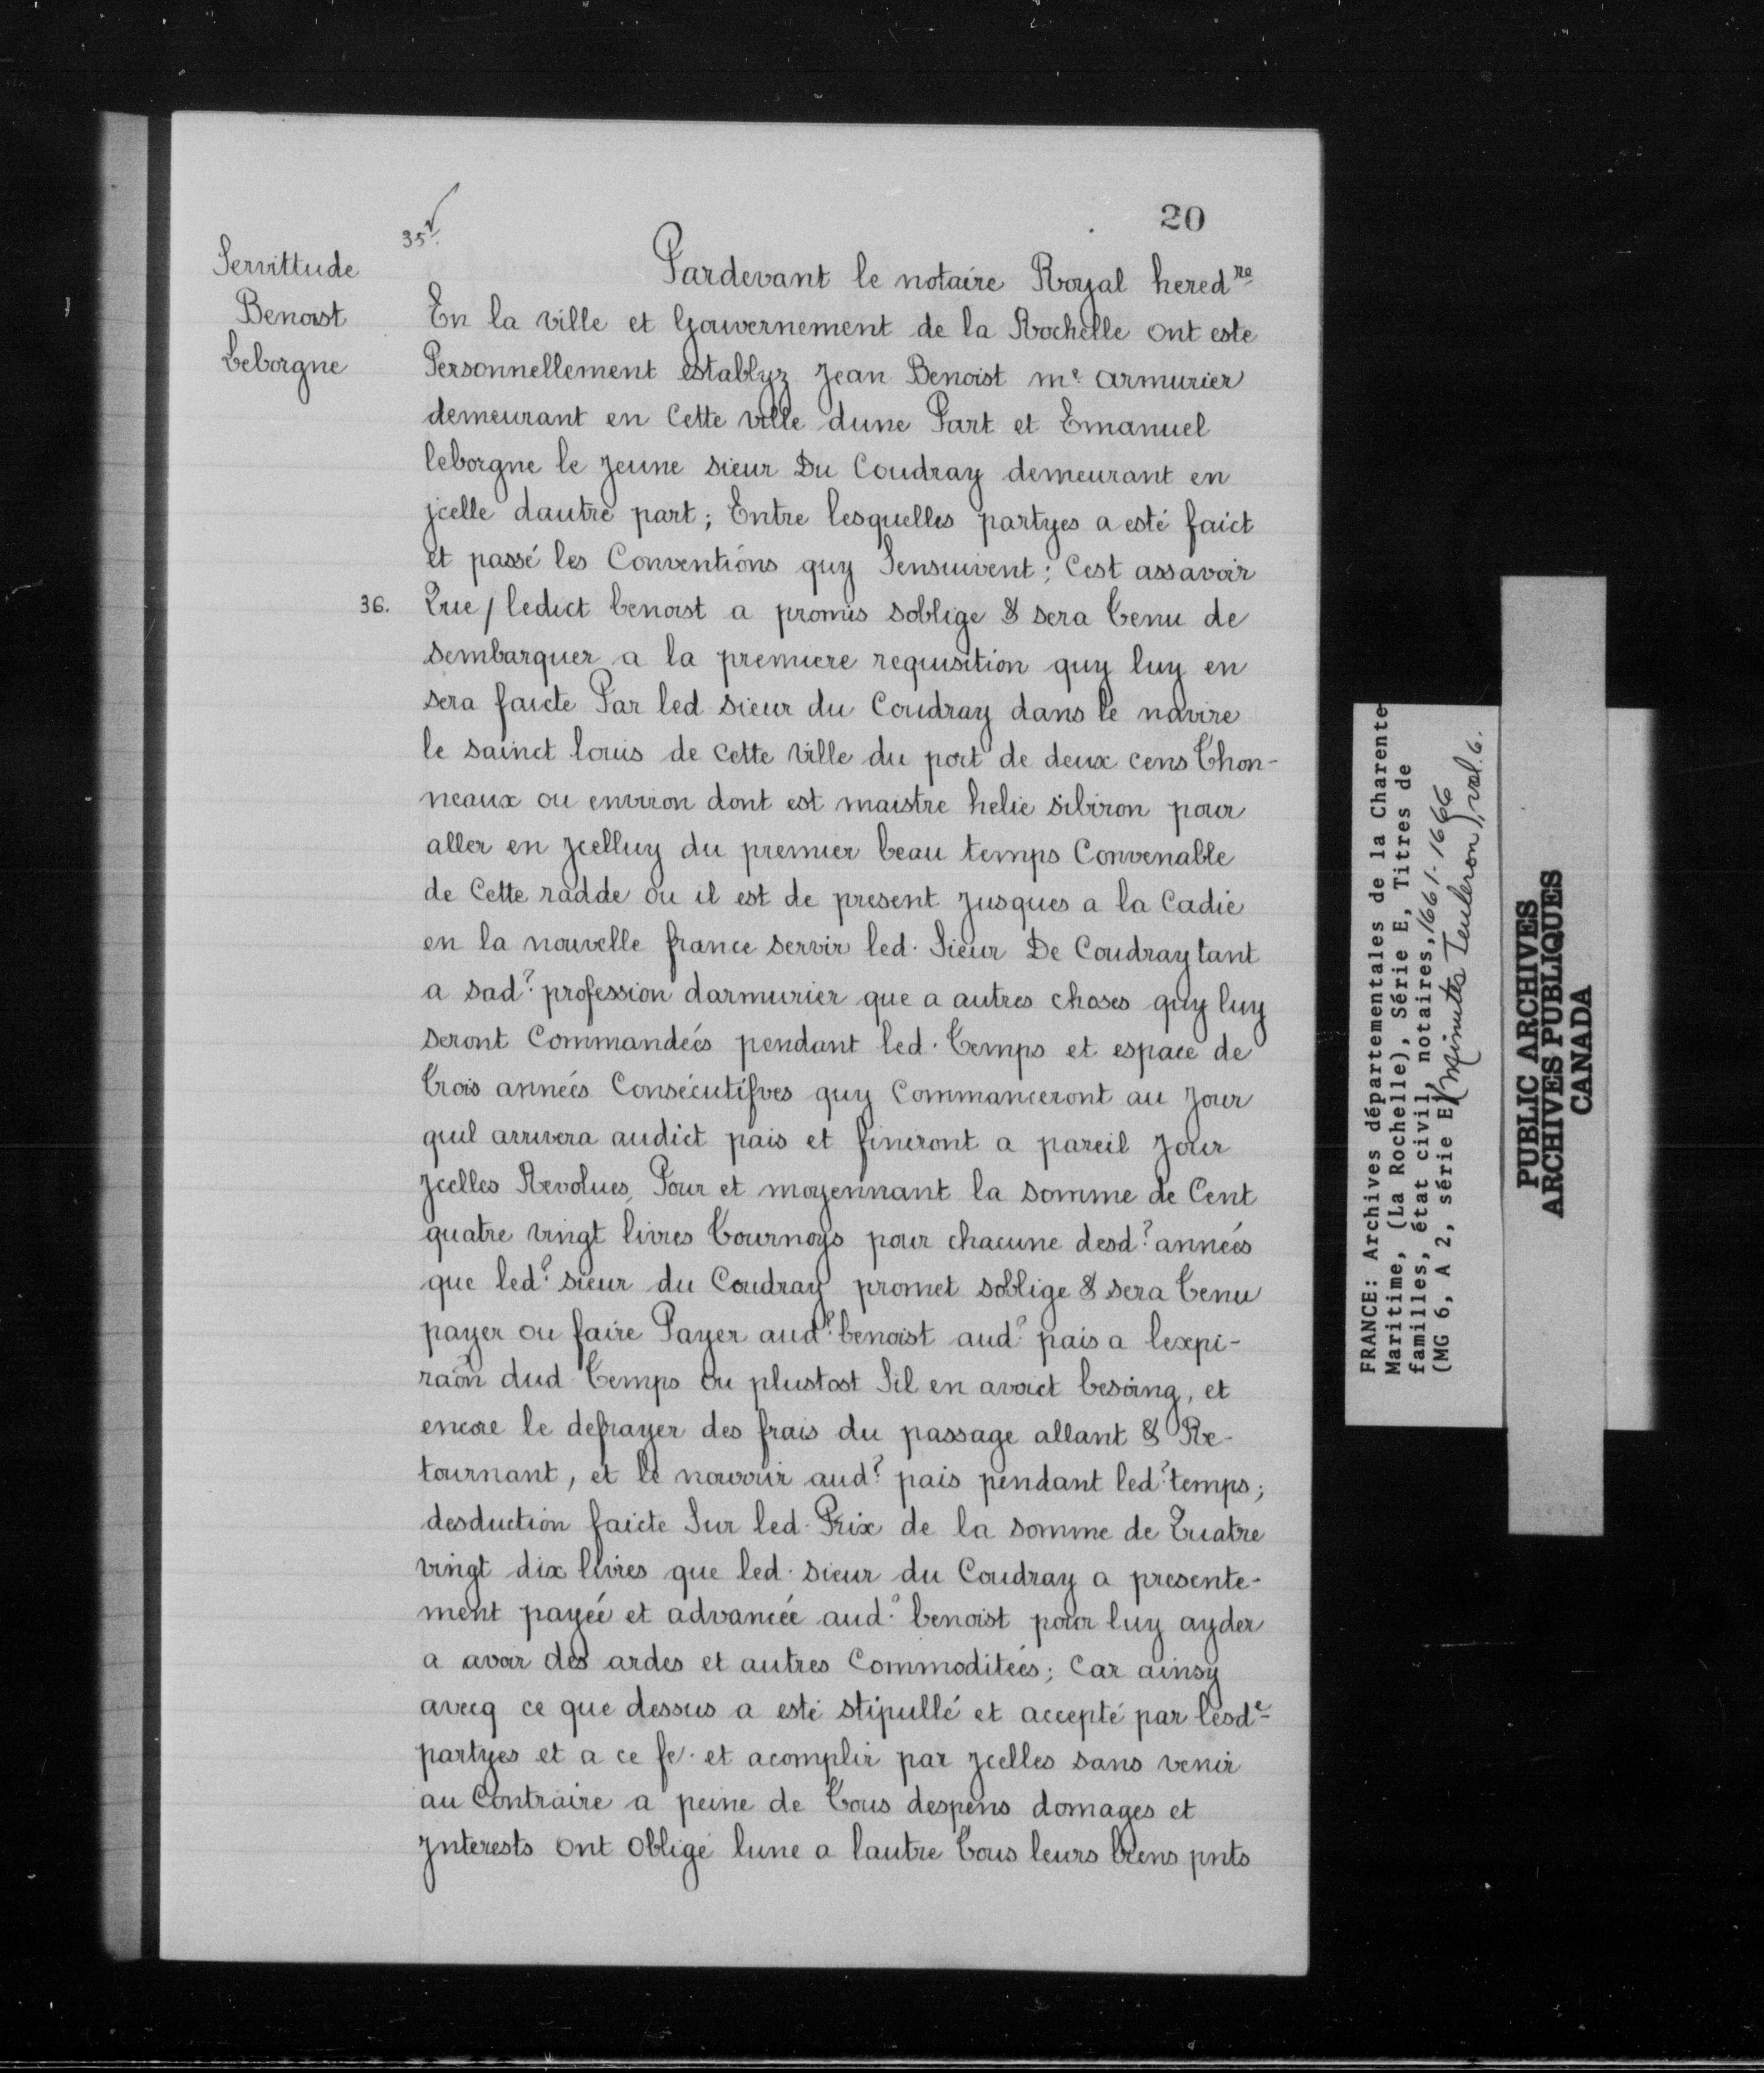 20
35v.
Servittude
Benoist
Leborgne
Pardevant le notaire Royal hered.re
En la ville et Gouvernement de la Rochelle ont este
Personnellement establyz Jean Benoist me armurier
demeurant en Cette ville dune Part et Emanuel
leborgne le Jeune sieur Du Coudray demeurant en
jcelle dautre part ; Entre lesquelles partyes a esté faict
et passé les Conventions quy Sensuivent ; Cest assavoir
36. Que / ledict benoist a promis soblige & sera tenu de
sembarquer a la premiere requisition quy luy en
sera faicte Par led sieur du Coudray dans le navire
le sainct louis de cette Ville du port de deux cens Thon-
neaux ou environ dont est maistre helie sibiron pour
aller en Jcelluy du premier beau temps Convenable
de Cette radde ou il est de present Jusques a la Cadie
en la nouvelle france servir led. Sieur De Coudray tant
a sad? profession darmurier que a autres choses quy luy
seront Commandéés pendant led. temps et espace de
trois annéés Consécutifves quy Commanceront au Jour
quil arrivera audict pais et finiront a pareil Jour
Jcelles Revolues, Pour et moyennant la somme de Cent
quatre vingt livres tournoys pour chacune desd? annéés
que led? sieur du Coudray promet soblige & sera tenu
payer ou faire Payer aud? benoist aud? pais a lexpi-
raõn dud temps ou plustost Sil en avoict besoing, et
encore le defrayer des frais du passage allant & Re-
tournant, et le nourrir aud? pais pendant led? temps ;
desduction faicte Sur led. Prix de la somme de Quatre
vingt dix livres que led. sieur du Coudray a presente-
ment payéé et advancéé aud? benoist pour luy ayder
a avoir des ardes et autres Commoditéés ; Car ainsy
avecq ce que dessus a esté stipullé et accepté par lesde
partyes et a ce fe. et acomplir par Jcelles sans venir
au Contraire a peine de tous despens domages et
Jnterests ont obligé lune a lautre tous leurs biens pnts
FRANCE: Archives départementales de la Charente
Maritime, (La Rochelle), Série E, Titres de
familles, état civil, notaires, 1661-1666
(MG 6, A 2, série E (Minutes Teuleron), vol. 6.
PUBLIC ARCHIVES
ARCHIVES PUBLIQUES
CANADA